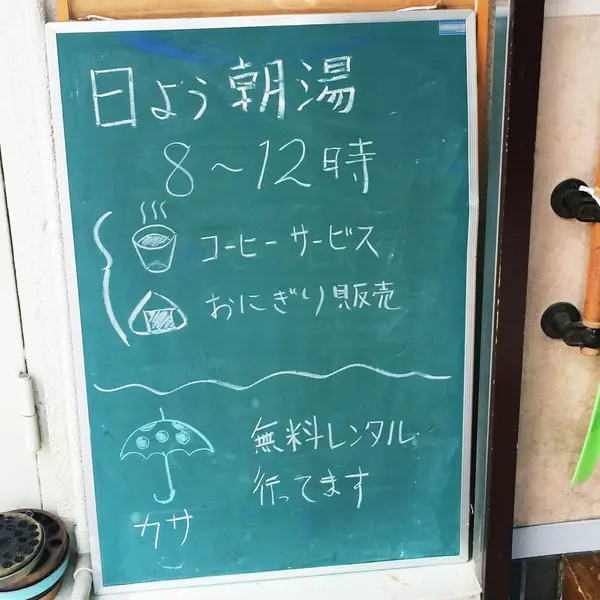 日よう朝湯
8～12時
コーヒーサービス
おにぎり販売
無料レンタル
行ってます
カサ